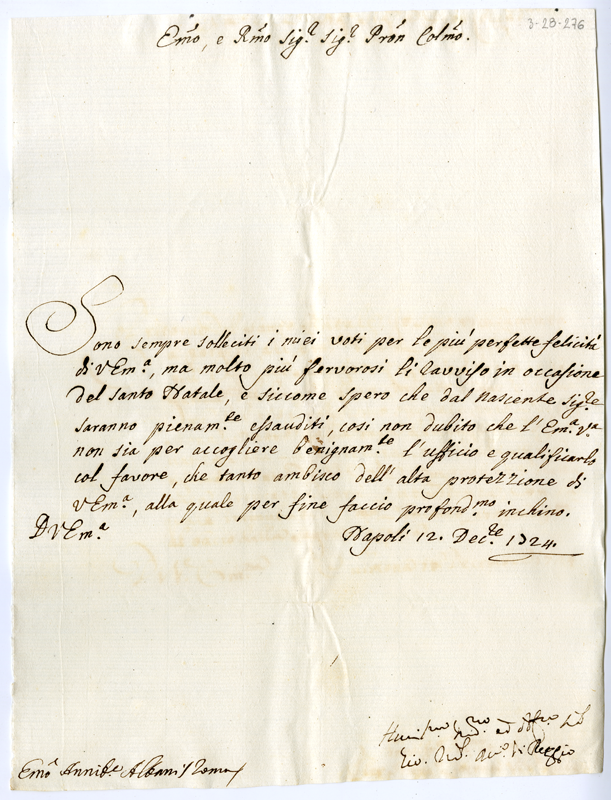 3-28-276
Emo, e Rmo Sigr Sigr Pron Colmo.
Sono sempre solleciti i miei voti per le più perfette felicità
di VEma, ma molto più fervorosi li ravviso in occasione
del Santo Natale, e siccome spero che dal nascente Sigre
saranno pienamte essauditi, cosi non dubito che l'Ema Va
non sia per accogliere benignamte l'ufficio e qualificarlo
col favore, che tanto ambisco dell'alta protezzione di
VEma, alla quale per fine faccio profondmo inchino.
D VEma
Napoli 12. Decre 1724.
ed
di Reggio
Emo Annibe Albani Roma